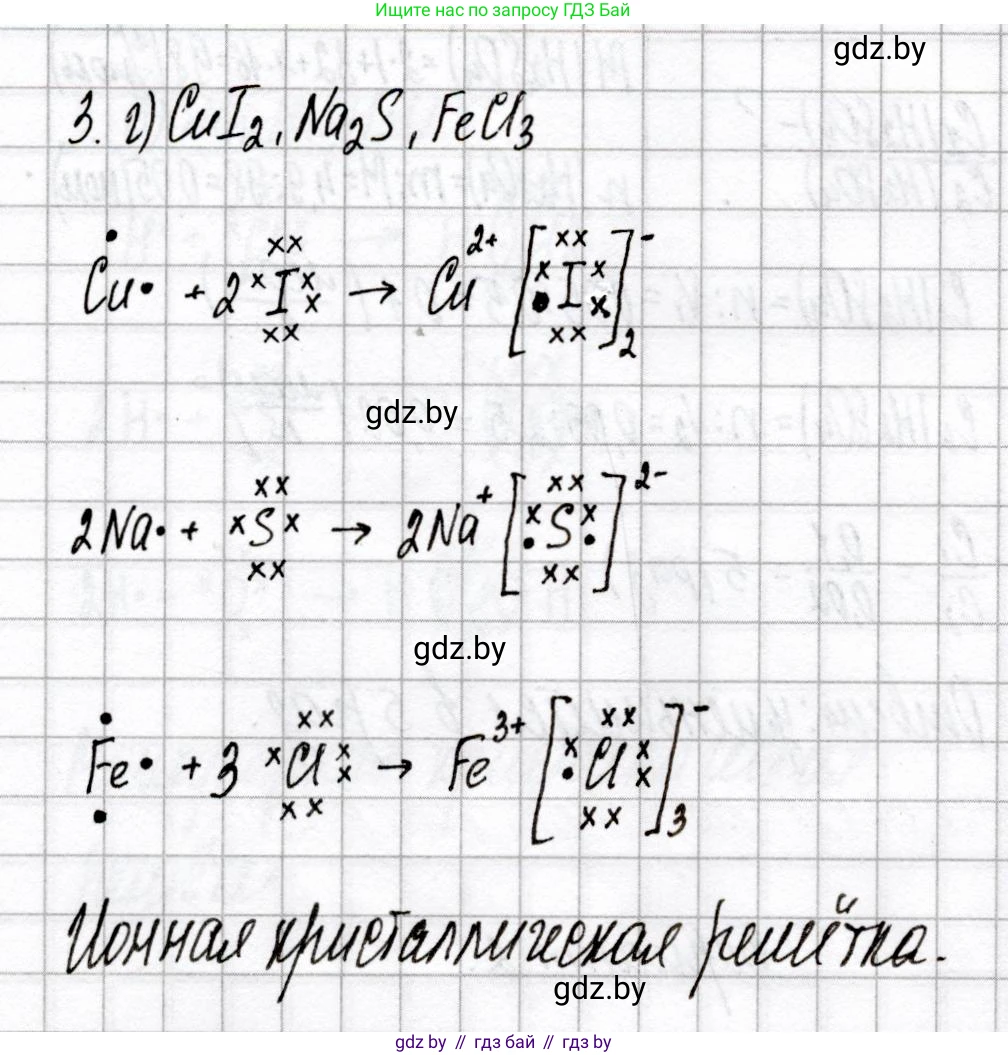 Ищите нас по запросу ГДЗ Бай
gdz.by
3. г) CuI₂, Na₂S, FeCl₃
Cu + 2 I → Cu²⁺ [ I ]⁻₂
gdz.by
2Na· + S → 2Na⁺ [ S ]²⁻
gdz.by
Fe + 3 Cl → Fe³⁺ [ Cl ]⁻₃
Ионная кристаллическая решётка.
gdz.by
gdz.by // гдз бай // gdz by